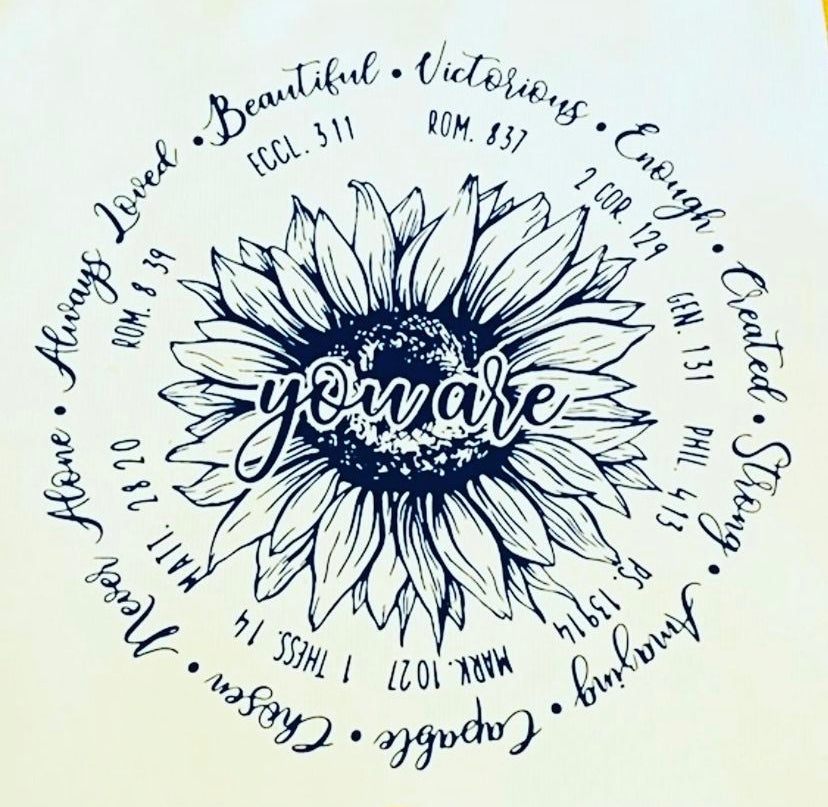 Beautiful • Victorious • Enough • Created • Strong • Amazing • Capable • Chosen • Never Alone • Always Loved •
ECCL. 3 11 ROM. 837 2 COR. 129 GEN. 131 PHIL. 413 PS. 13914 MARK. 1027 1 THESS. 14 MATT. 28 20 ROM. 8 39
you are